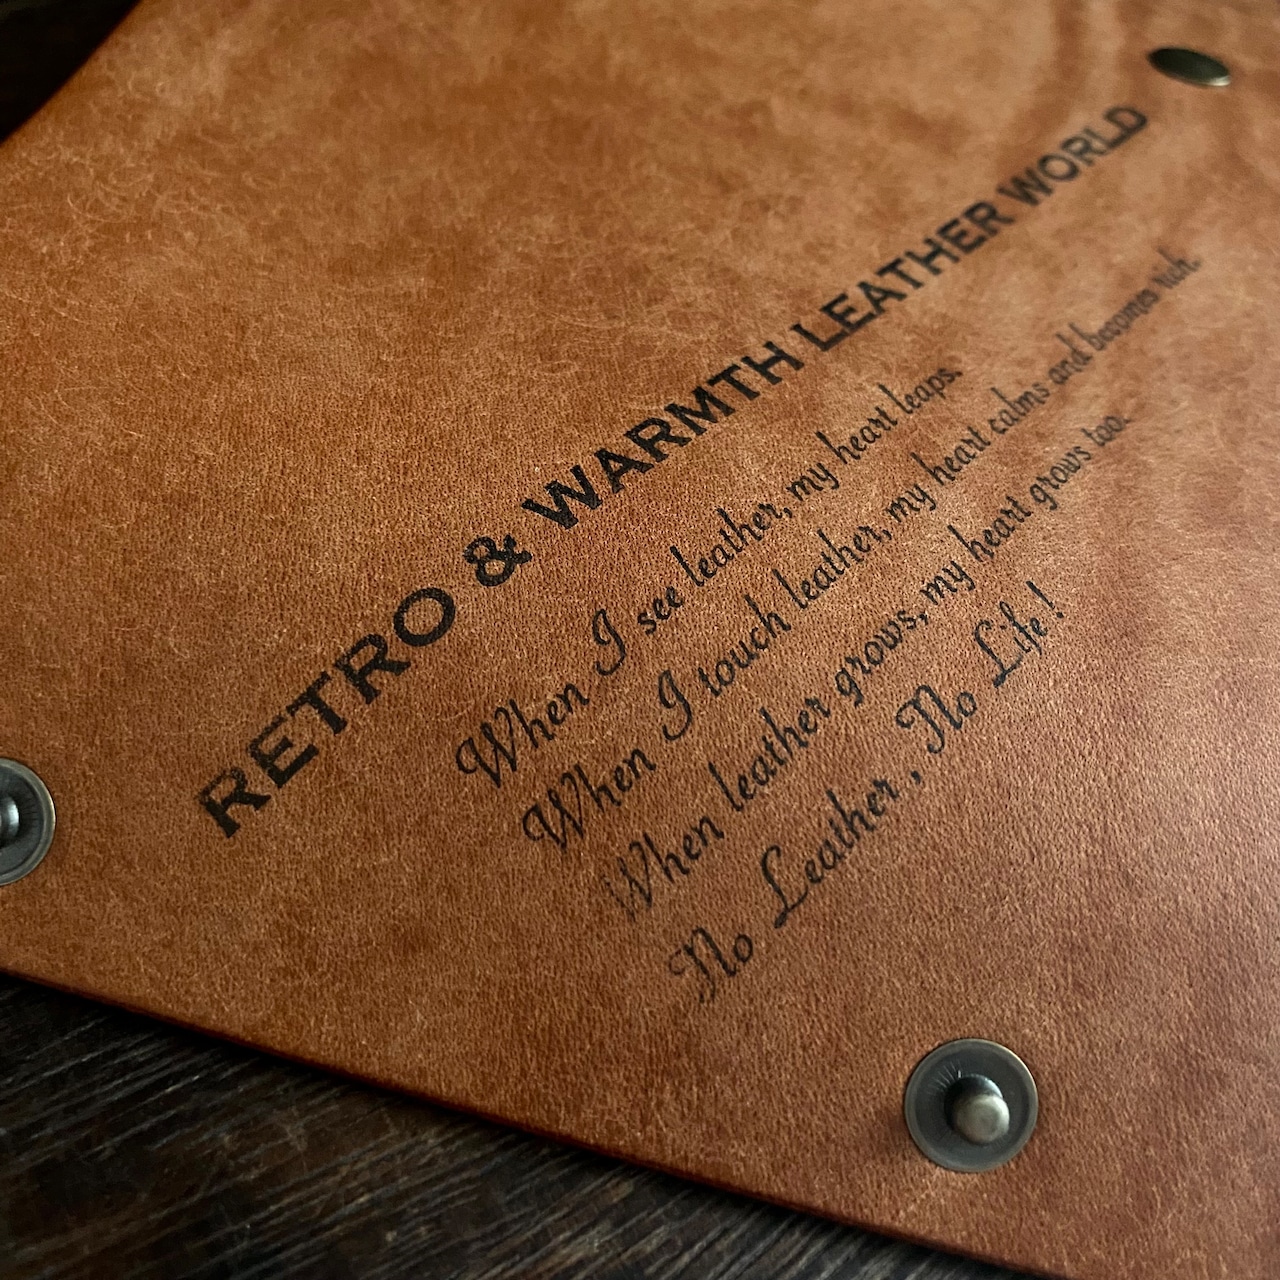 RETRO & WARMTH LEATHER WORLD
When I see leather, my heart leaps.
When I touch leather, my heart calms and becomes rich.
When leather grows, my heart grows too.
No Leather, No Life!